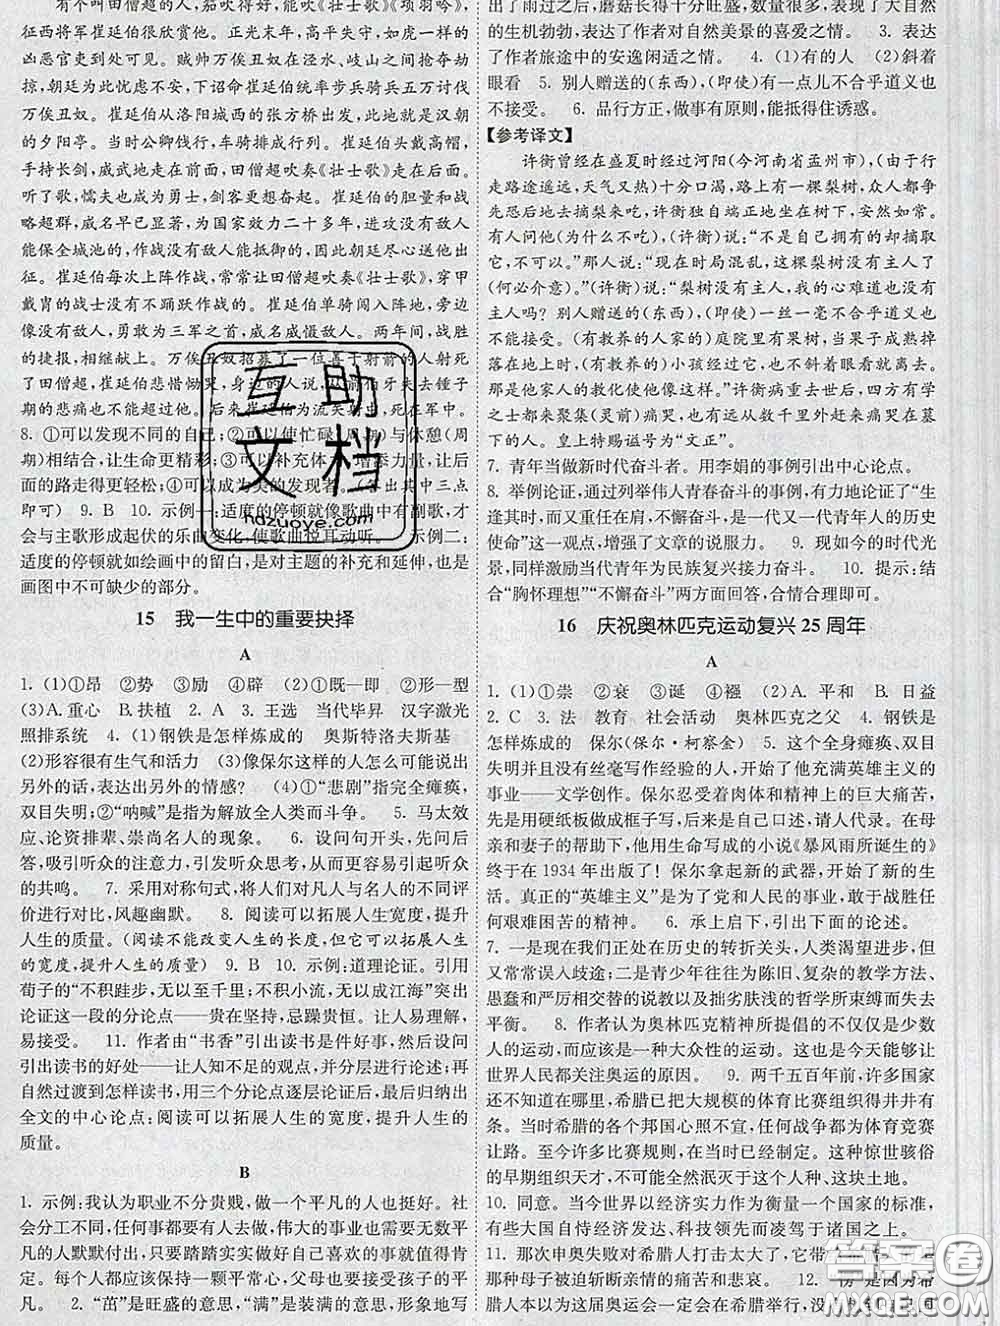 有一个叫田僧超的人，吹茄吹得好，能吹《壮士歌》《项羽吟》，
征西将军崔延伯很欣赏他。正光末年，高平失守，如虎一样的
凶恶官吏到处可见。贼帅万俟丑奴在泾水、岐山之间抢夺劫
掠，朝廷为此忧虑不安，下诏命崔延伯统率步兵骑兵五万讨伐
万俟丑奴。崔延伯从洛阳城西的张方桥出发，也就是汉朝
的夕阳亭。当时公卿饯行，车骑排成行列。崔延伯头戴高帽，
手持长剑，威武地走在前面，田僧超吹奏《壮士歌》走在后面。
听了歌，懦夫也成为勇士，剑客更想奋击。崔延伯的胆量和战
略超群，威名早已显著，为国家效力二十多年，进攻没有敌人
能保全城池的，作战没有敌人能抵御的，因此朝廷尽心送他出
征。崔延伯每次上阵作战，常常让田僧超吹奏《壮士歌》，穿甲
戴胄的战士没有不踊跃作战的。崔延伯单骑闯入阵地，旁边
像没有人一样，勇武为三军之首，威名威慑敌人。两年间，战胜
的捷报，相继献上。万俟丑奴招募了一位善于射箭的人射死
了田僧超，崔延伯悲惜恸哭，身边的人说，从前伯牙失去锺子
期的悲痛也不能超过他。后来崔延伯为流矢射中，死在军中。
8. ①可以发现不同的自己；②可以使忙碌(周期)与休憩(周
期)相结合，让生命更精彩；③可以补充体力，增添力量，让后
面的路走得更轻松；④可以成为美的发现者。(答出其中三点
即可) 9. B 10. 示例一：适度的停顿就像歌曲中有副歌，才
会与主歌形成起伏的乐曲变化，使歌曲悦耳动听。 示例二：
适度的停顿就如绘画中的留白，是对主题的补充和延伸，也是
画图中不可缺少的部分。
15 我一生中的重要抉择
A
1. (1)①昂 ②势 ③励 ④辟 (2)①既—即 ②形—型
(3)A. 重心 B. 扶植 2. A 3. 王选 当代毕昇 汉字激光
照排系统 4. (1)钢铁是怎样炼成的 奥斯特洛夫斯基
(2)形容很有生气和活力 (3)像保尔这样的人怎么可能说出
另外的话，表达出另外的情感？ (4)①“悲剧”指完全瘫痪，
双目失明；②“呐喊”是指为解放全人类而斗争。 5. 马太效
应、论资排辈、崇尚名人的现象。 6. 设问句开头，先问后
答，吸引听众注意力，引发听众思考，从而更容易引起听众
的共鸣。 7. 采用对称句式，将人们对凡人与名人的不同评
价进行对比，风趣幽默。 8. 阅读可以拓展人生宽度，提升
人生的质量。(阅读不能改变人生的长度，但它可以拓展人生
的宽度，提升人生的质量) 9. B 10. 示例：道理论证。引用
荀子的“不积跬步，无以至千里；不积小流，无以成江海”突出
论证这一段的分论点——贵在坚持，忌躁贵恒。让人易理解，
易接受。 11. 作者由“书香”引出读书是件好事，然后设问
引出读书的好处——让人知不足的观点，并分层进行论证；
再自然过渡到怎样读书，用三个分论点逐层论证后，最后归纳出
全文的中心论点：阅读可以拓展人生的宽度，提升人生的
质量。
B
1. 示例：我认为职业不分贵贱，做一个平凡的人也挺好。社
会分工不同，任何事都要有人去做，伟大的事业也需要无数平
凡的人默默付出，只要踏踏实实做好自己喜欢的事就值得肯
定。每个人都应该保持一颗平常心，父母也要接受孩子的平
凡。 2. “茁”是旺盛的意思，“满”是装满的意思，形象地写
出了雨过之后，蘑菇长得十分旺盛，数量很多，表现了大自然
的生机勃勃，表达了作者对自然美景的喜爱之情。 3. 表达
了作者旅途中的安逸闲适之情。 4. (1)有的人 (2)斜着
眼看 5. 别人赠送的(东西)，(即使)有一点儿不合乎道义也
不接受。 6. 品行方正，做事有原则，能抵得住诱惑。
【参考译文】
许衡曾经在盛夏时经过河阳(今河南省孟州市)，(由于行
走路途遥远，天气又热)十分口渴，路上有一棵梨树，众人都争
先恐后地去摘梨来吃，许衡独自端正地坐在树下，安然如常。
有人问他(为什么不吃)，(许衡)说：“不是自己拥有的却去摘
它，不可以。”那人说：“现在时局混乱，这棵梨树没有主人了
(何必介意)。”(许衡)说：“梨树没有主人，我的心难道也没有
主人吗？别人赠送的(东西)，(即使)一丝一毫不合乎道义也
不能接受。(有教养的人家的)庭院里有果树，果子成熟掉落
在地上，(有教养的)小孩经过这里，也不斜着眼看就离开了，
那是他家人的教化使他像这样。”许衡病重去世后，四方有学
之士都来聚集(灵前)痛哭，也有从数千里外赶来痛哭在墓
下的人。皇上特赐谥号为“文正”。
7. 青年当做新时代奋斗者。用李娟的事例引出中心论点。
8. 举例论证，通过列举伟人青春奋斗的事例，有力地论证了“生
逢其时，而又重任在肩，不懈奋斗，是一代又一代青年人的历史
使命”这一观点，增强了文章的说服力。 9. 现如今的时代光
景，深刻揭示当代青年为民族复兴接力奋斗。 10. 提示：结
合“胸怀理想”“不懈奋斗”两方面回答，合情合理即可。
16 庆祝奥林匹克运动复兴25周年
A
1. (1)①崇 ②衰 ③诞 ④襁 (2)A. 平和 B. 日益
2. C 3. 法 教育 社会活动 奥林匹克之父 4. 钢铁是
怎样炼成的 保尔(保尔·柯察金) 5. 这个全身瘫痪、双目
失明并且没有丝毫写作经验的人，开始了他充满英雄主义的
事业——文学创作。保尔忍受着肉体和精神上的巨大痛苦，
先是用硬纸板做成框子写，后来是自己口述，请人代录。在母
亲和妻子的帮助下，他用生命写成的小说《暴风雨所诞生的》
终于在1934年出版了！保尔拿起新的武器，开始了新的生
活。真正的“英雄主义”是为了党和人民的事业，敢于战胜任
何艰难困苦的精神。 6. 承上启下，引出下面的论述。
7. 一是现在我们正处在历史的转折关头，人类渴望进步，但
又常常误入歧途；二是青少年往往为陈旧、复杂的教学方法、
愚蠢和严厉相交替的说教以及拙劣肤浅的哲学所束缚而失去
平衡。 8. 作者认为奥林匹克精神所提倡的不仅仅是少数
人的运动，而应该是一种大众性的运动。这也是今天能够让
世界人民都关注奥运的原因。 9. 两千五百年前，许多国家
还在沉睡的时候，希腊已把大规模的体育比赛组织得井井有
条。当时希腊的各个邦国心照不宣，任何战争都为体育竞赛
让路。至今许多比赛规则，在当时已经制定。这种惊世骇俗
的早期组织天才，不可能全然泯灭于这个人种、这块土地。
10. 同意。当今世界以经济实力作为衡量一个国家的标准，
有些大国自恃经济发达、科技领先而凌驾于诸国之上。
11. 那次申奥失败对希腊人打击太大了，它带
那种母子被迫斩断亲情的痛苦和悲哀。 12.
腊人本以为这届奥运会一定会在希腊举行，没
互助
文档
hdzuoye.com
答案圈
MXQE.COM